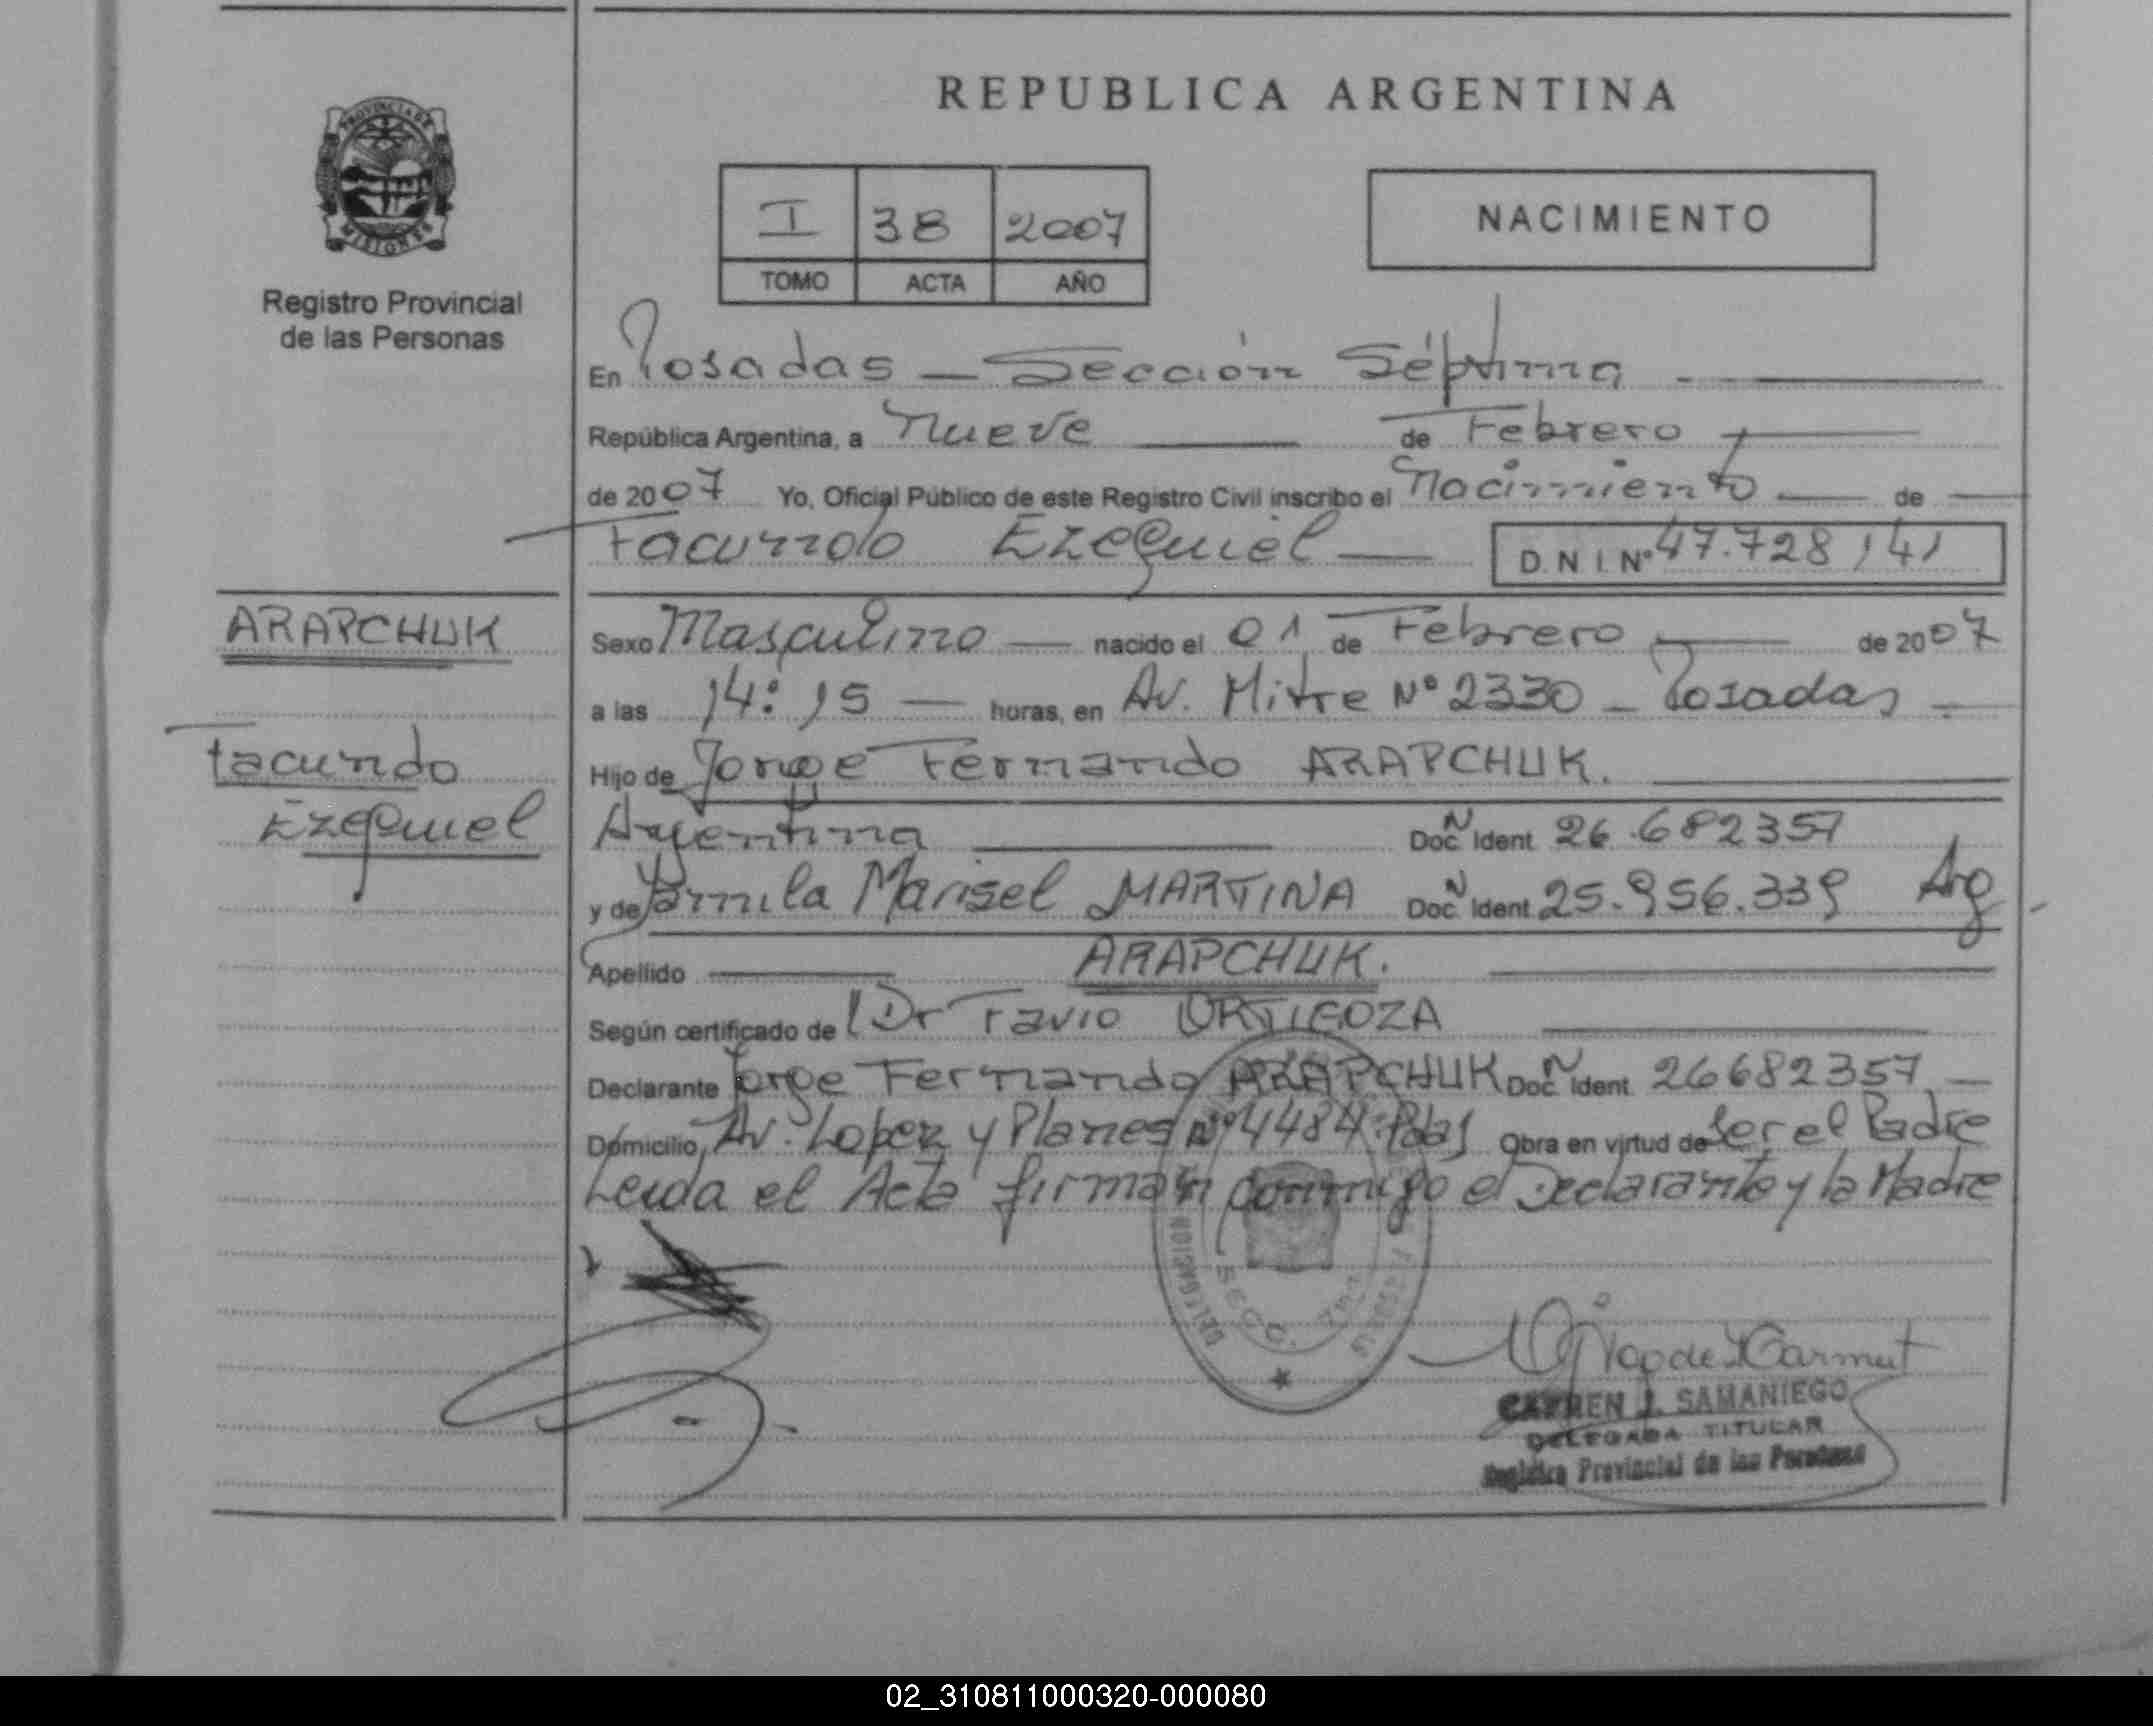 REPUBLICA ARGENTINA
PROVINCIA DE
MISIONES
Registro Provincial
de las Personas
I 38 2007
TOMO ACTA AÑO
NACIMIENTO
En Posadas - Sección Séptima
República Argentina, a nueve de Febrero
de 2007 Yo, Oficial Público de este Registro Civil inscribo el Nacimiento de
Facundo Ezequiel D.N.I. Nº 47.728141
ARAPCHUK
Facundo
Ezequiel
Sexo Masculino nacido el 01 de Febrero de 2007
a las 14:15 horas, en Av. Mitre Nº 2330 - Posadas
Hijo de Jorge Fernando ARAPCHUK.
Argentina Doc. Ident. 26.682357
y de Yamila Marisel MARTINA Doc. Ident. 25.956.339 Arg
Apellido ARAPCHUK.
Según certificado de Dr Favio ORTIGOZA
Declarante Jorge Fernando ARAPCHUK Doc. Ident. 26682357
Domicilio Av. Lopez y Planes Nº 4484 Pdas Obra en virtud de ser el Padre
Leida el Acta firman conmigo el Declarante y la Madre
DELEGACION
SECC.
CARMEN J. SAMANIEGO
DELEGADA TITULAR
Registro Provincial de las Personas
02_310811000320-000080